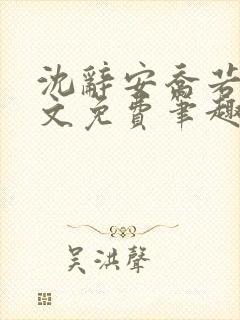 沈辭安喬若
文免費筆趣
吴洪聲